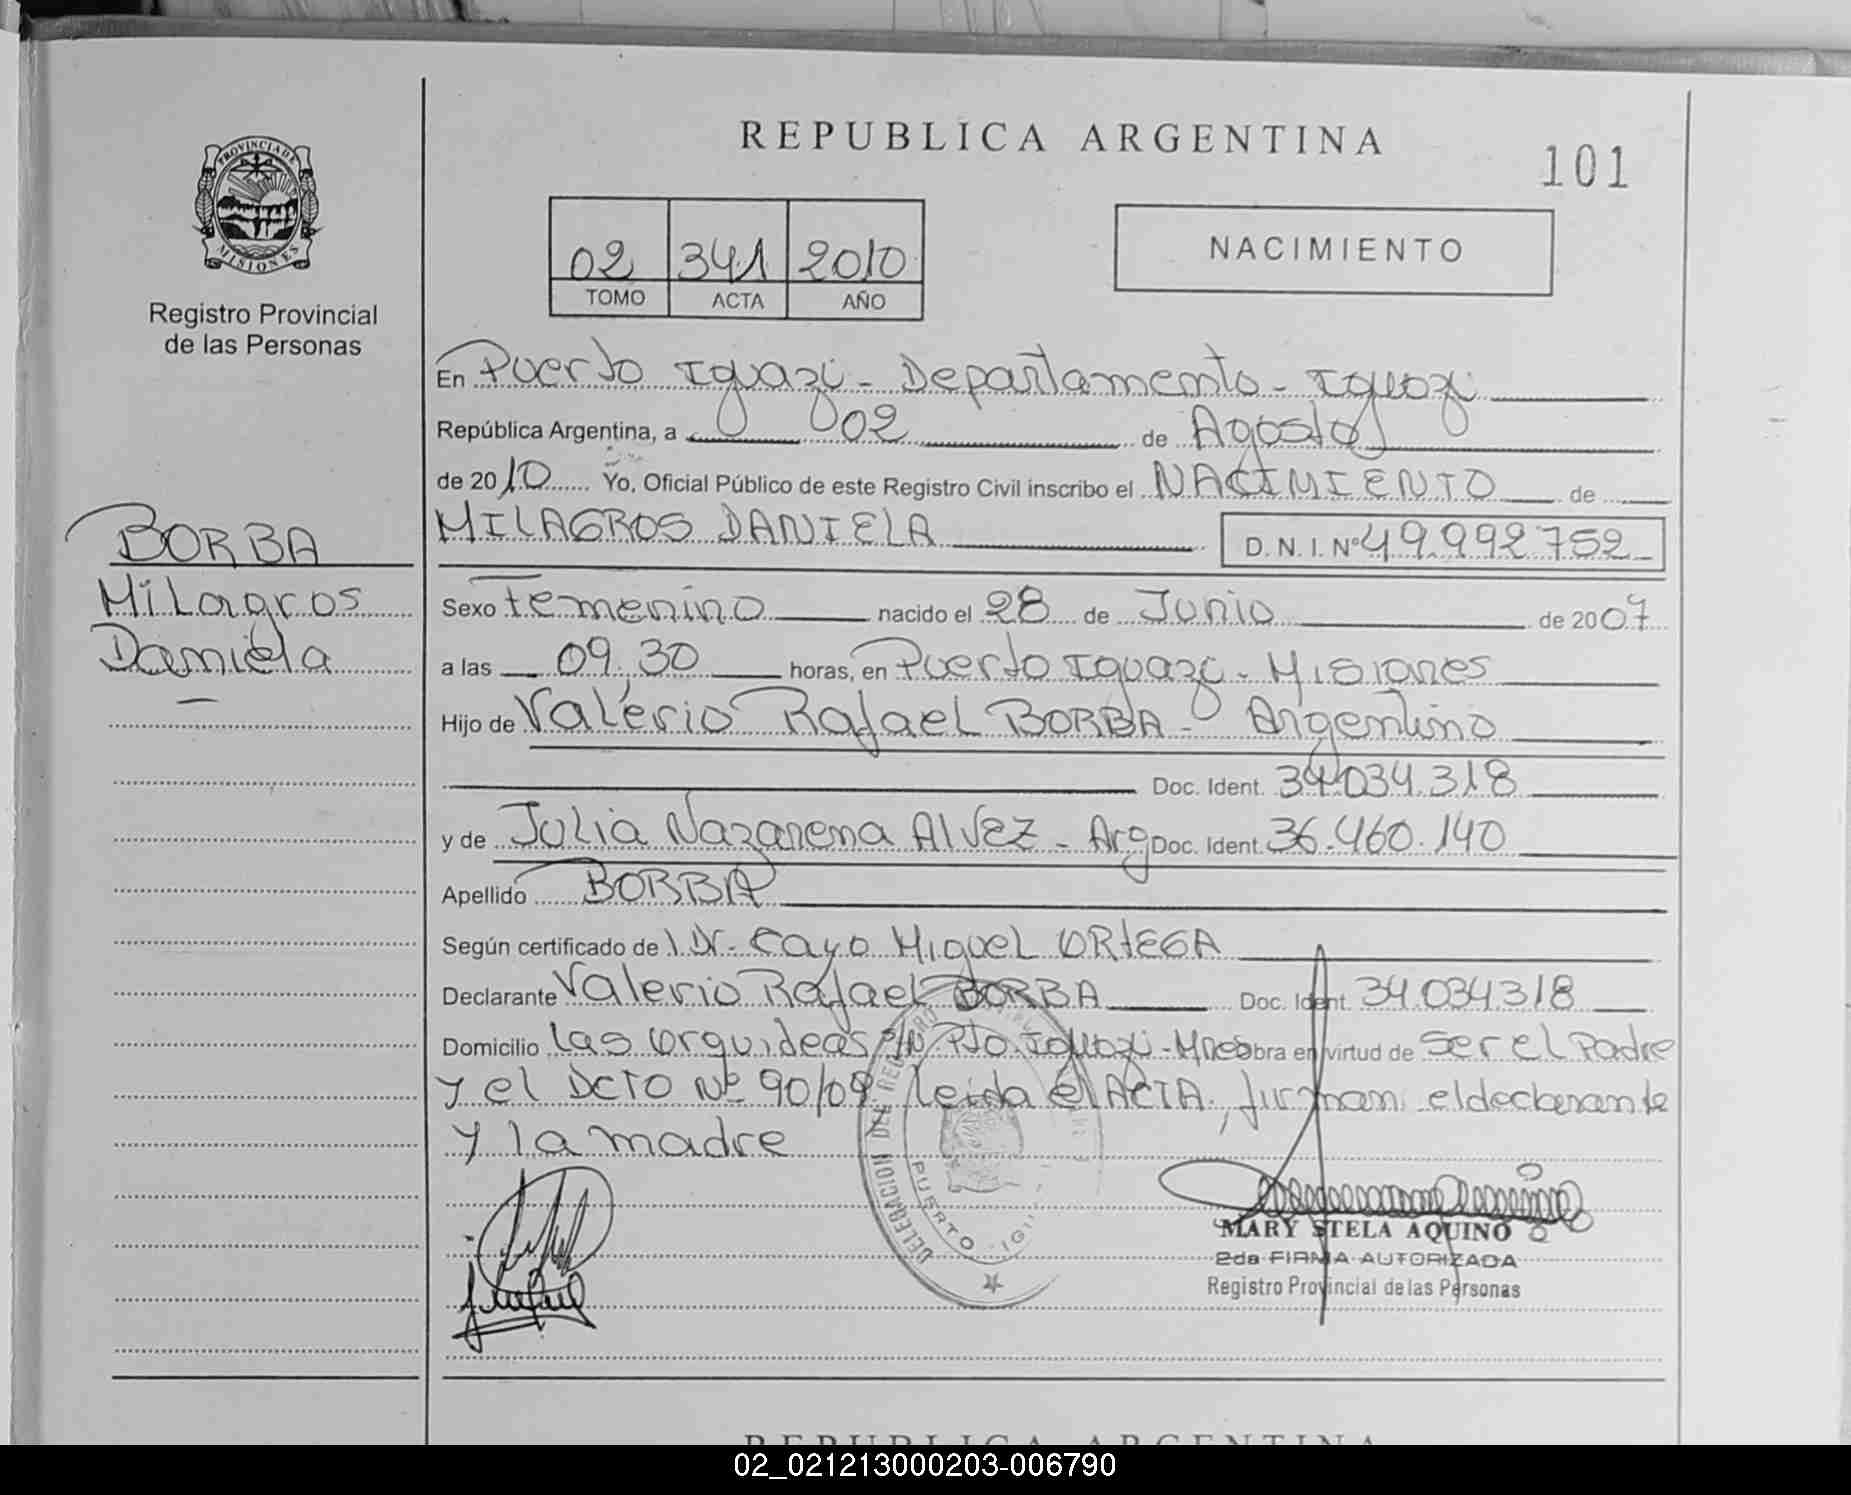 REPUBLICA ARGENTINA
101
PROVINCIA DE
MISIONES
Registro Provincial
de las Personas
02 341 2010
TOMO ACTA AÑO
NACIMIENTO
En Puerto Iguazú - Departamento - Iguazú
República Argentina, a 02 de Agosto
de 2010 Yo, Oficial Público de este Registro Civil inscribo el NACIMIENTO de
MILAGROS DANIELA D.N.I. Nº 49.992752
BORBA
Milagros
Daniela
Sexo Femenino nacido el 28 de Junio de 2007
a las 09.30 horas, en Puerto Iguazú - Misiones
Hijo de Valerio Rafael BORBA - Argentino
Doc. Ident. 34.034.318
y de Julia Nazarena Alvez - Arg Doc. Ident. 36.460.140
Apellido BORBA
Según certificado de Dr. Cayo Miguel ORTEGA
Declarante Valerio Rafael BORBA Doc. Ident. 34.034.318
Domicilio Las Orquideas S/N Pto. Iguazú - Mnes obra en virtud de ser el Padre
y el DCTO Nº 90/09. Leida el ACTA, firman el declarante
y la madre
DELEGACION DEL REGISTRO
PUERTO
MARY STELA AQUINO
2da FIRMA AUTORIZADA
Registro Provincial de las Personas
REPUBLICA ARGENTINA
02_021213000203-006790